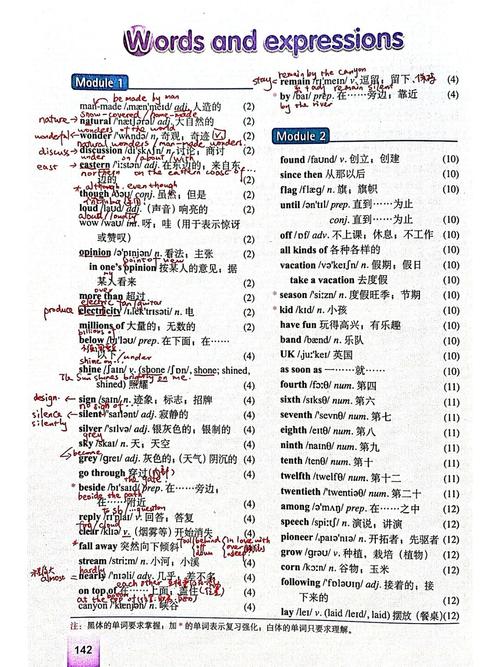 Words and expressions
Module 1
be made by man
man-made /ˌmænˈmeɪd/ adj. 人造的 (2)
snow-covered / home-made
nature natural /ˈnætʃərəl/ adj. 大自然的 (2)
wonders of the world
wonderful wonder /ˈwʌndə/ n. 奇观；奇迹 v. (2)
natural wonders / man-made wonders
discuss discussion /dɪˈskʌʃn/ n. 讨论；商讨 (2)
under on / about / with
east eastern /ˈiːstən/ adj. 在东边的；来自东边的 (2)
northern on the eastern coast of
although even though
though /ðəʊ/ conj. 虽然，但是 (2)
loud /laʊd/ adj. (声音) 响亮的 (2)
aloud / loudly
wow /waʊ/ int. 呀；哇（用于表示惊讶
或赞叹） (2)
opinion /əˈpɪnjən/ n. 看法；主张 (2)
point of view
in one's opinion 按某人的意见；据
my
某人看来 (2)
more than 超过 (2)
over
electric fan / guitar
produce electricity /ɪˌlekˈtrɪsəti/ n. 电 (2)
millions of 大量的；无数的 (2)
billions of
below /bɪˈləʊ/ prep. 在下面；在……
以下 / under (4)
shine on
shine /ʃaɪn/ v. (shone /ʃɒn/, shone; shined,
shined) 照耀 (4)
The Sun shines brightly on me.
design sign /saɪn/ n. 迹象；标志；招牌 (4)
no sign of
silence silent /ˈsaɪlənt/ adj. 寂静的 (4)
silently silver /ˈsɪlvə/ adj. 银灰色的；银制的 (4)
sky /skaɪ/ n. 天；天空 (4)
grey /ɡreɪ/ adj. 灰色的；(天气) 阴沉的 (4)
become
go through 穿过 (4)
the gate
* beside /bɪˈsaɪd/ prep. 在……旁边；
beside the path
在……附近 (4)
to sb / question
reply /rɪˈplaɪ/ v. 回答；答复 (4)
fog / cloud
clear /klɪə/ v. (烟雾等) 开始消失 (4)
fall behind / in love with
* fall away 突然向下倾斜 (4)
off over
down asleep
stream /striːm/ n. 小河；小溪 (4)
hardly
almost nearly /ˈnɪəli/ adv. 几乎，差不多 (4)
each other
on top of 在……上面；盖住 (4)
at the top of
canyon /ˈkænjən/ n. 峡谷 (4)
remain by the canyon
stay remain /rɪˈmeɪn/ v. 逗留；留下 保持 (4)
remain silent
* by /baɪ/ prep. 在……旁边；靠近 (4)
by the river
Module 2
found /faʊnd/ v. 创立；创建 (10)
since then 从那以后 (10)
flag /flæɡ/ n. 旗；旗帜 (10)
until /ənˈtɪl/ prep. 直到……为止
conj. 直到……为止 (10)
off /ɒf/ adv. 不上课；休息；不工作 (10)
all kinds of 各种各样的 (10)
vacation /vəˈkeɪʃn/ n. 假期；假日 (10)
take a vacation 去度假 (10)
* season /ˈsiːzn/ n. 度假旺季；节期 (10)
* kid /kɪd/ n. 小孩 (10)
have fun 玩得高兴；有乐趣 (10)
band /bænd/ n. 乐队 (10)
UK /ˌjuːˈkeɪ/ 英国 (10)
as soon as 一……就…… (10)
fourth /fɔːθ/ num. 第四 (11)
sixth /sɪksθ/ num. 第六 (11)
seventh /ˈsevnθ/ num. 第七 (11)
eighth /eɪtθ/ num. 第八 (11)
ninth /naɪnθ/ num. 第九 (11)
tenth /tenθ/ num. 第十 (11)
twelfth /twelfθ/ num. 第十二 (11)
twentieth /ˈtwentiəθ/ num. 第二十 (11)
among /əˈmʌŋ/ prep. 在……之中 (12)
speech /spiːtʃ/ n. 演说，讲演 (12)
pioneer /ˌpaɪəˈnɪə/ n. 开拓者；先驱者 (12)
grow /ɡrəʊ/ v. 种植，栽培（植物） (12)
corn /kɔːn/ n. 谷物；玉米 (12)
following /ˈfɒləʊɪŋ/ adj. 接着的；接
下来的 (12)
lay /leɪ/ v. (laid /leɪd/, laid) 摆放（餐桌）(12)
注：黑体的单词要求掌握，加 * 的单词表示复习强化，白体的单词只要求理解。
142